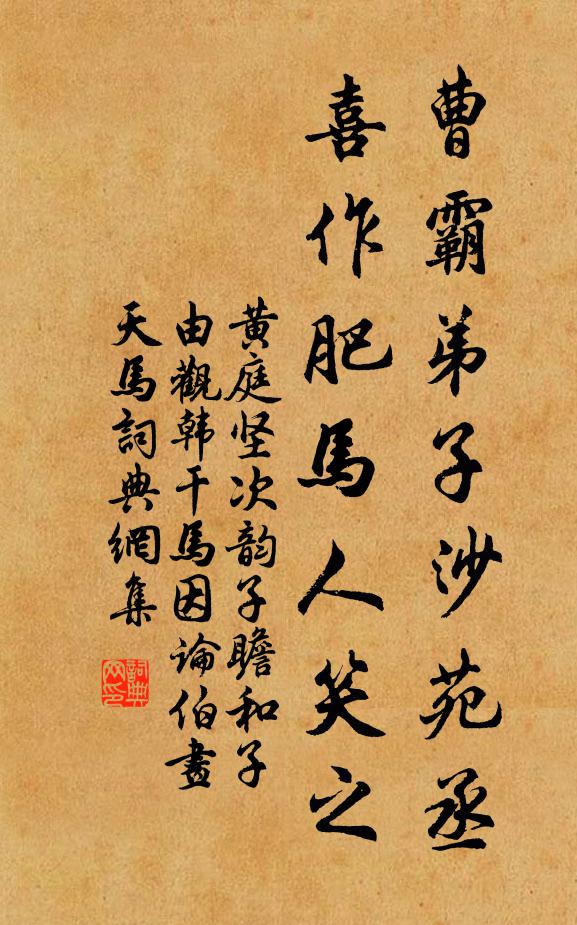 曹霸弟子沙苑丞
喜作肥馬人笑之
黄庭坚次韵子瞻和子
由觀韩干馬因论伯畫
天馬詞典網集
詞典
网印